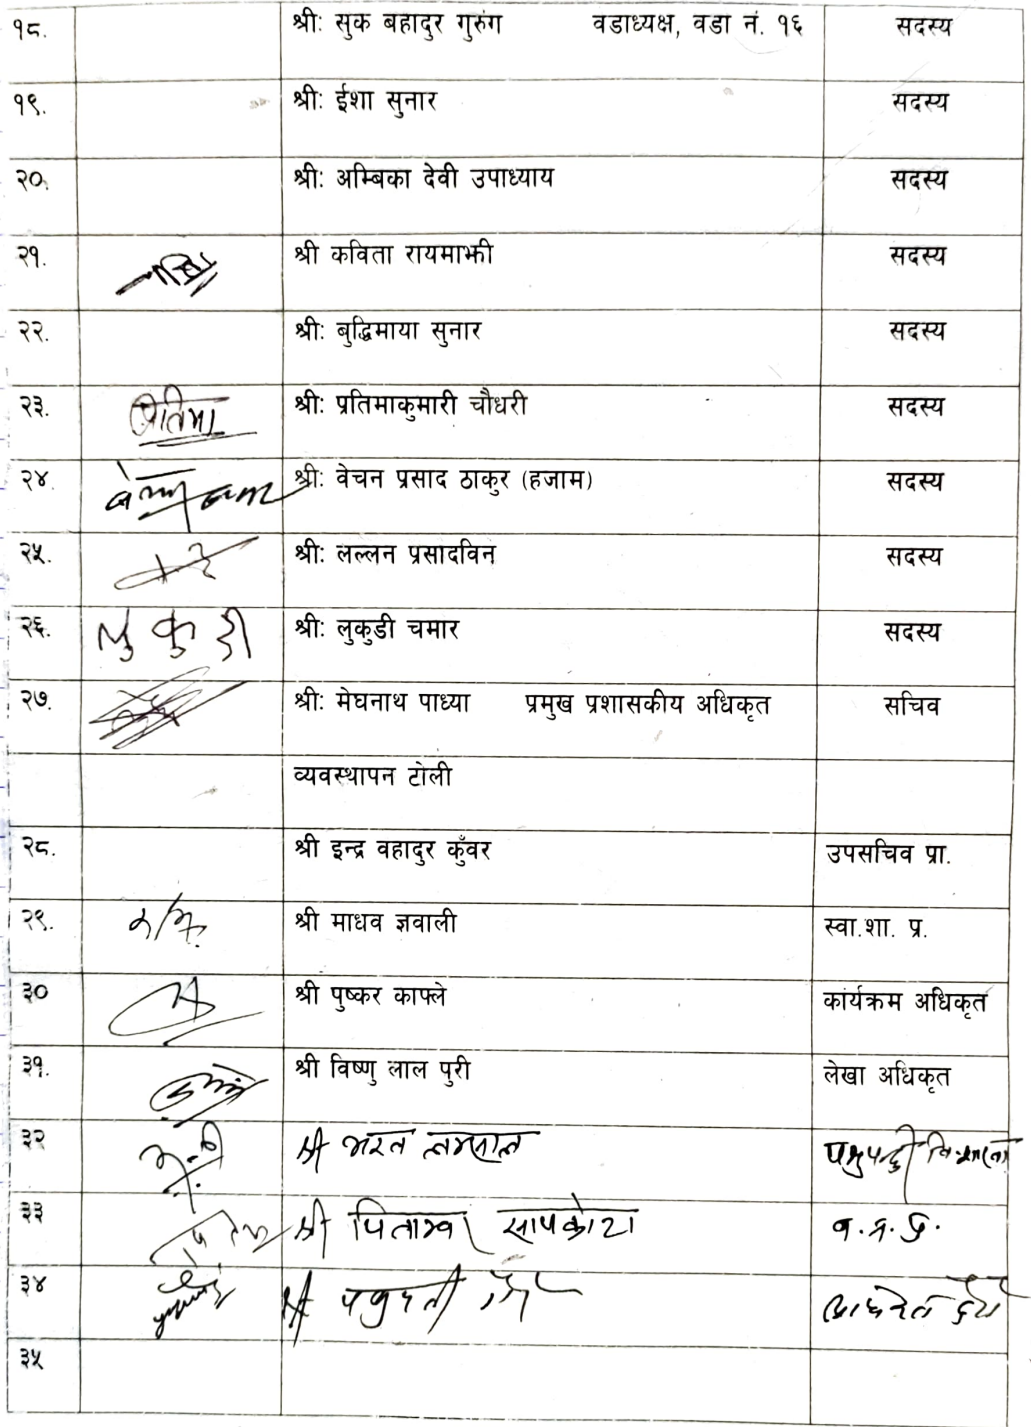 १८. श्री: सुक बहादुर गुरुंग वडाध्यक्ष, वडा नं. १६ सदस्य
१९. श्री: ईशा सुनार सदस्य
२०. श्री: अम्बिका देवी उपाध्याय सदस्य
२१. श्री कविता रायमाझी सदस्य
२२. श्री: बुद्धिमाया सुनार सदस्य
२३. प्रतिमा श्री: प्रतिमाकुमारी चौधरी सदस्य
२४. श्री: वेचन प्रसाद ठाकुर (हजाम) सदस्य
२५. श्री: लल्लन प्रसादविन सदस्य
२६. लुकुडी श्री: लुकुडी चमार सदस्य
२७. श्री: मेघनाथ पाध्या प्रमुख प्रशासकीय अधिकृत सचिव
व्यवस्थापन टोली
२८. श्री इन्द्र वहादुर कुँवर उपसचिव प्रा.
२९. श्री माधव ज्ञवाली स्वा.शा. प्र.
३० श्री पुष्कर काफ्ले कार्यक्रम अधिकृत
३१. श्री विष्णु लाल पुरी लेखा अधिकृत
३२ श्री भरत लम्साल
३३ श्री सापकोटा
३४ श्री
३५